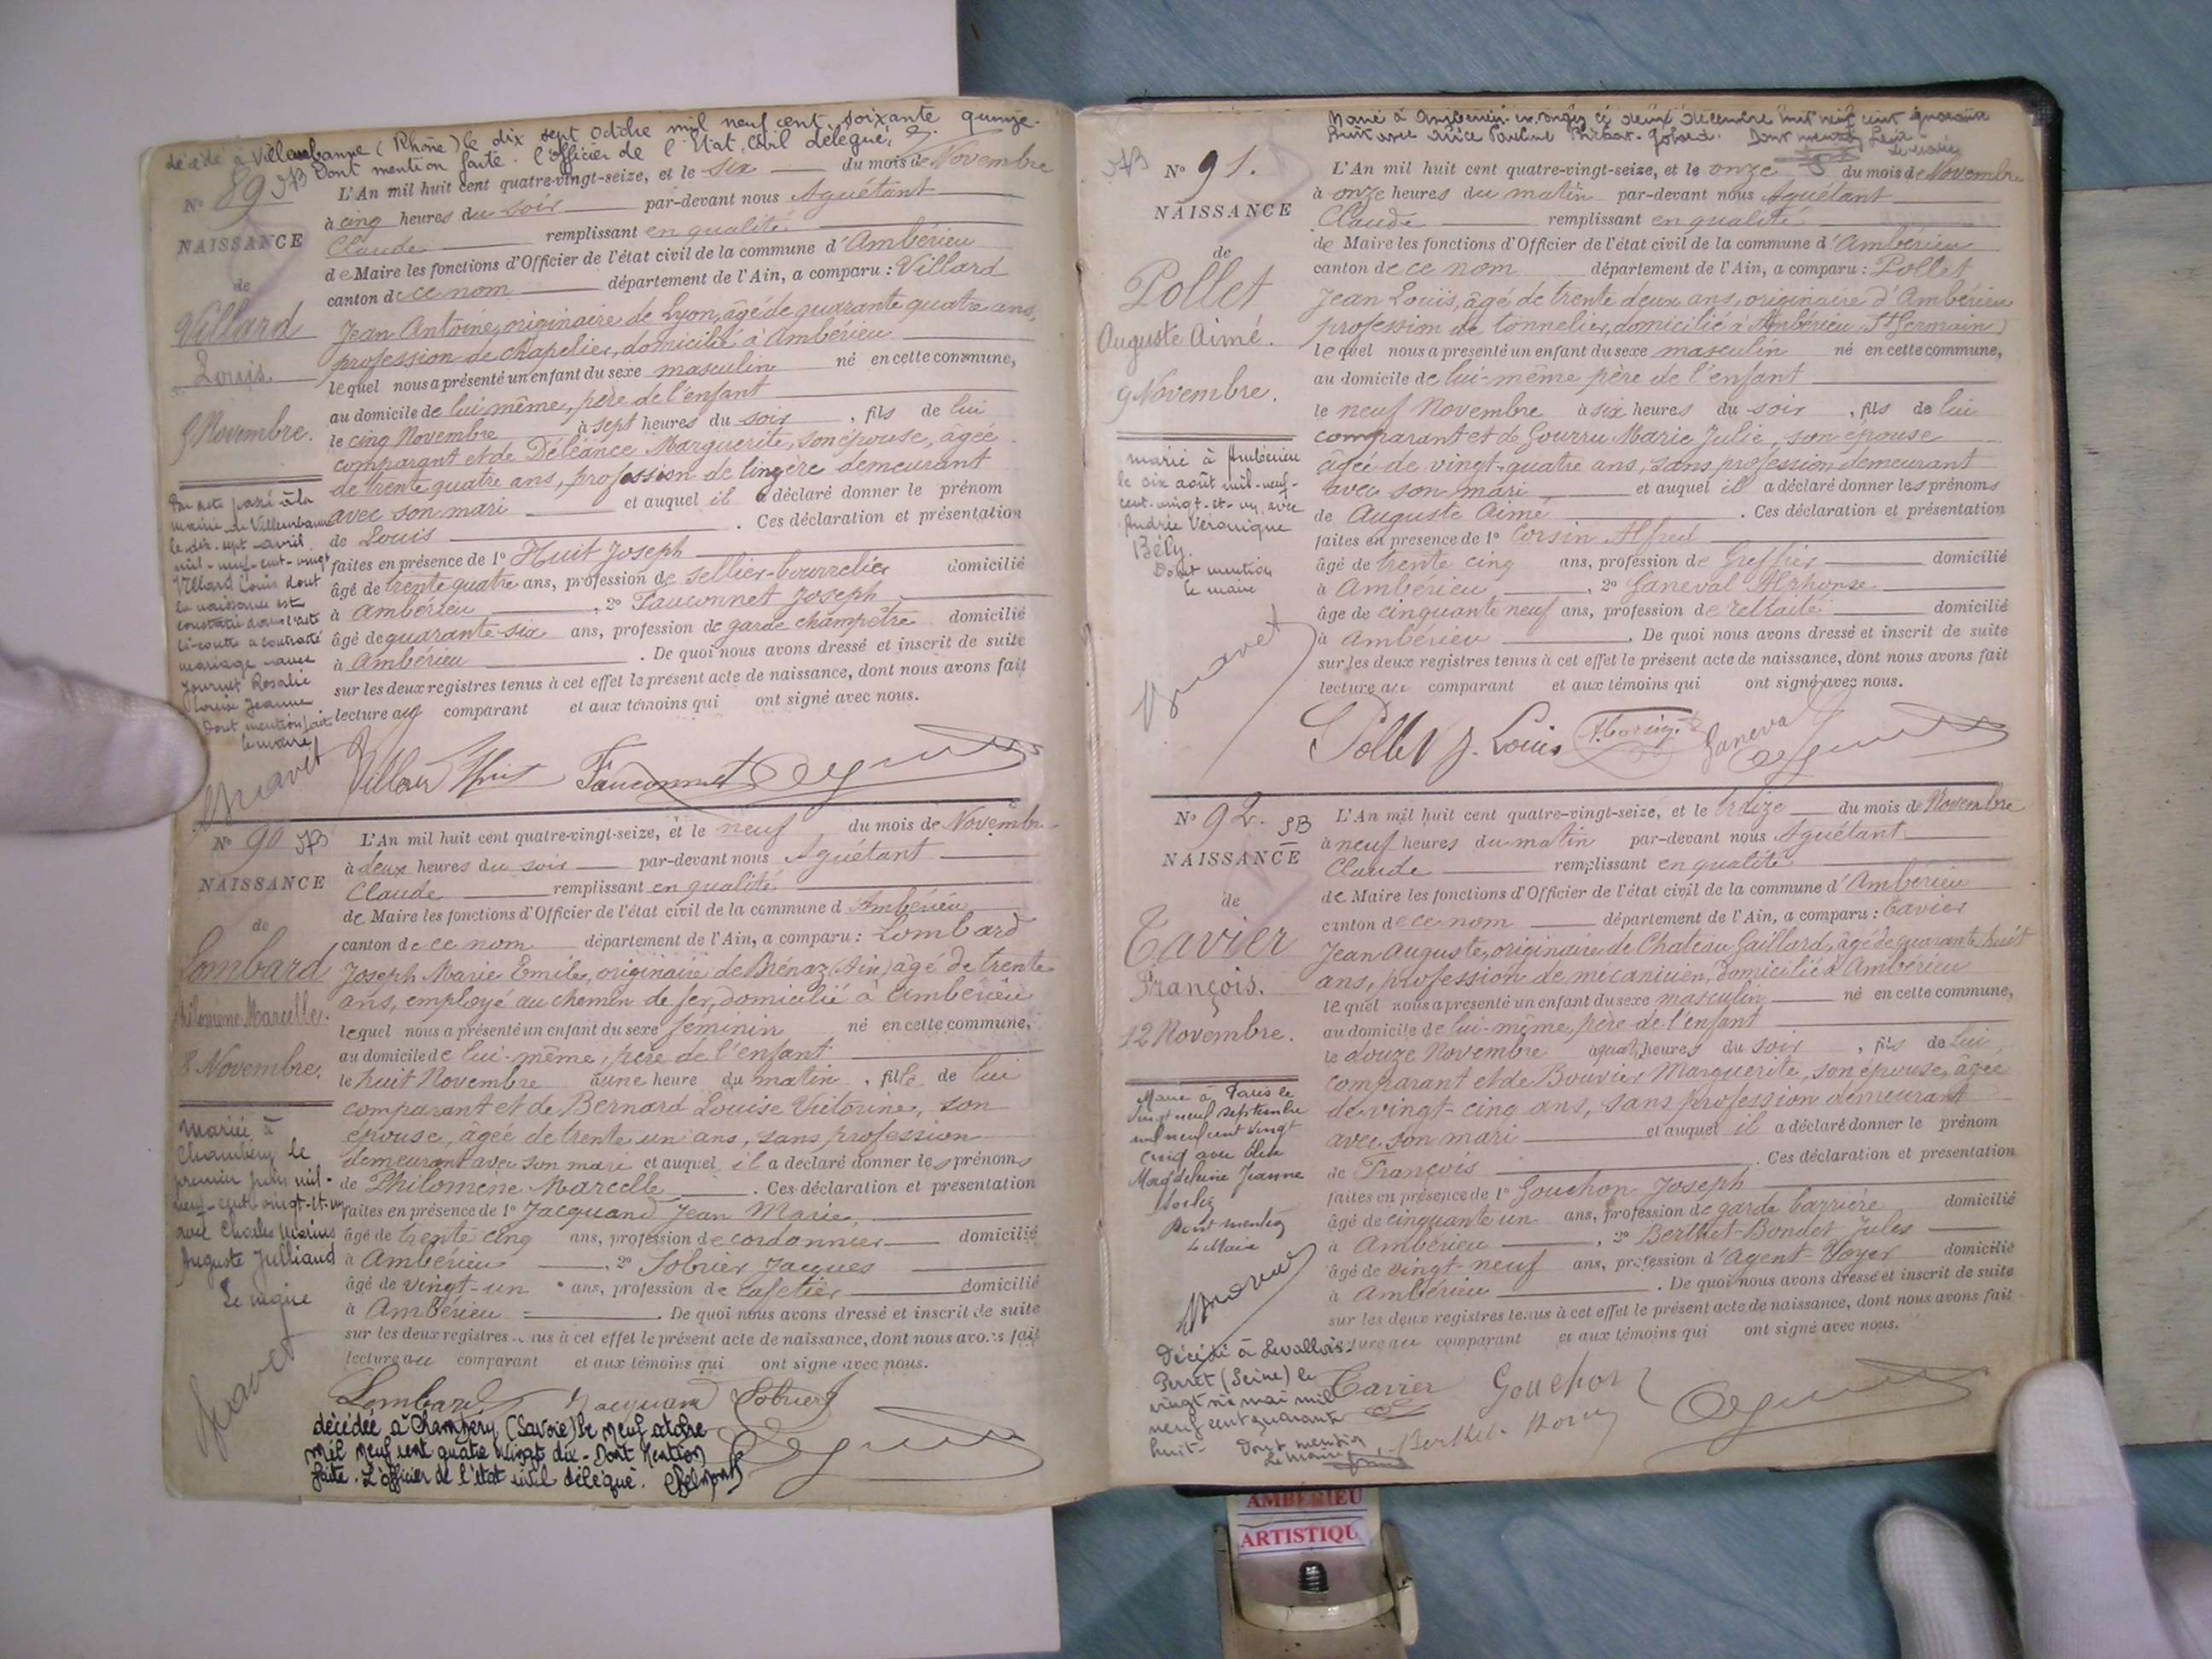 décédé à Villeurbanne (Rhône) le dix sept Octobre mil neuf cent soixante quinze.
Dont mention faite. l'officier de l'Etat Civil délégué,
N° 89 JB
NAISSANCE
de
Villard
Louis
5 Novembre.
Par acte passé à la
mairie de Villeurbanne
le dix-sept avril
mil-neuf-cent-vingt
Villard Louis dont
la naissance est
constatée dans l'acte
ci-contre a contracté
mariage avec
Journet Rosalie
Louise Jeanne
Dont mention faite
le maire
L'An mil huit cent quatre-vingt-seize, et le six du mois de Novembre
à cinq heures du soir par-devant nous Aguétant
Claude remplissant en qualité
de Maire les fonctions d'Officier de l'état civil de la commune d'Ambérieu
canton de ce nom département de l'Ain, a comparu : Villard
Jean Antoine, originaire de Lyon, âgé de quarante quatre ans,
profession de chapelier, domicilié à Ambérieu
lequel nous a présenté un enfant du sexe masculin né en cette commune,
au domicile de lui même, père de l'enfant
le cinq Novembre à sept heures du soir, fils de lui
comparant et de Déléance Marguerite, son épouse, âgée
de trente quatre ans, profession de lingère demeurant
avec son mari et auquel il a déclaré donner le prénom
de Louis. Ces déclaration et présentation
faites en présence de 1° Huit Joseph
âgé de trente quatre ans, profession de sellier-bourrelier domicilié
à Ambérieu, 2° Fauconnet Joseph
âgé de quarante-six ans, profession de garde champêtre domicilié
à Ambérieu. De quoi nous avons dressé et inscrit de suite
sur les deux registres tenus à cet effet le présent acte de naissance, dont nous avons fait
lecture au comparant et aux témoins qui ont signé avec nous.
Villard Huit Fauconnet
N° 90 JB
NAISSANCE
de
Lombard
Philomène Marcelle.
8 Novembre.
Mariée à
Chambéry le
premier juin mil-
neuf-cent-vingt-et-un
avec Charles Marius
Auguste Julliand
L'An mil huit cent quatre-vingt-seize, et le neuf du mois de Novembre
à deux heures du soir par-devant nous Aguétant
Claude remplissant en qualité
de Maire les fonctions d'Officier de l'état civil de la commune d'Ambérieu
canton de ce nom département de l'Ain, a comparu : Lombard
Joseph Marie Emile, originaire de Bénaz (Ain) âgé de trente
ans, employé au chemin de fer, domicilié à Ambérieu
lequel nous a présenté un enfant du sexe féminin né en cette commune,
au domicile de lui-même, père de l'enfant
le huit Novembre à une heure du matin, fille de lui
comparant et de Bernard Louise Victorine, son
épouse, âgée de trente un ans, sans profession
demeurant avec son mari et auquel il a déclaré donner les prénoms
de Philomène Marcelle. Ces déclaration et présentation
faites en présence de 1° Jacquand Jean Marie,
âgé de trente cinq ans, profession de cordonnier domicilié
à Ambérieu, 2° Sobrier Jacques
âgé de vingt-un ans, profession de cafetier domicilié
à Ambérieu. De quoi nous avons dressé et inscrit de suite
sur les deux registres tenus à cet effet le présent acte de naissance, dont nous avons fait
lecture au comparant et aux témoins qui ont signé avec nous.
Lombard Jacquand Sobrier
décédée à Chambéry (Savoie) le neuf octobre
mil neuf cent quatre vingt dix. Dont Mention
faite. L'officier de l'état civil délégué.
Marié à Ambérieu-en-Bugey le deux décembre mil neuf cent quarante
huit avec Alice Pauline Dont mention
N° 91.
NAISSANCE
de
Pollet
Auguste Aimé.
9 Novembre.
marié à Ambérieu
le six août mil-neuf-
cent-vingt-et-un avec
Andrée Véronique
Bély.
Dont mention
le maire
L'An mil huit cent quatre-vingt-seize, et le onze du mois de Novembre
à onze heures du matin par-devant nous Aguétant
Claude remplissant en qualité
de Maire les fonctions d'Officier de l'état civil de la commune d'Ambérieu
canton de ce nom département de l'Ain, a comparu : Pollet
Jean Louis, âgé de trente deux ans, originaire d'Ambérieu
profession de tonnelier, domicilié à Ambérieu (St Germain)
lequel nous a présenté un enfant du sexe masculin né en cette commune,
au domicile de lui-même père de l'enfant
le neuf Novembre à six heures du soir, fils de lui
comparant et de Gourru Marie Julie, son épouse
âgée de vingt-quatre ans, sans profession demeurant
avec son mari et auquel il a déclaré donner les prénoms
de Auguste Aimé. Ces déclaration et présentation
faites en présence de 1° Corsin Alfred
âgé de trente cinq ans, profession de Greffier domicilié
à Ambérieu, 2° Ganeval Alphonse
âgé de cinquante neuf ans, profession de retraité domicilié
à Ambérieu. De quoi nous avons dressé et inscrit de suite
sur les deux registres tenus à cet effet le présent acte de naissance, dont nous avons fait
lecture au comparant et aux témoins qui ont signé avec nous.
Pollet J. Louis A. Corsin Ganeval
N° 92. JB
NAISSANCE
de
Tavier
François.
12 Novembre.
Marié à Paris le
vingt neuf septembre
mil neuf cent vingt
cinq avec
Magdeleine Jeanne
Dont mention
Le Maire
Décédé à Levallois-
Perret (Seine) le
vingt six mai mil
neuf cent quarante
huit. Dont mention
Le Maire
L'An mil huit cent quatre-vingt-seize, et le treize du mois de Novembre
à neuf heures du matin par-devant nous Aguétant
Claude remplissant en qualité
de Maire les fonctions d'Officier de l'état civil de la commune d'Ambérieu
canton de ce nom département de l'Ain, a comparu : Tavier
Jean Auguste, originaire de Chateau Gaillard, âgé de quarante huit
ans, profession de mécanicien, domicilié à Ambérieu
lequel nous a présenté un enfant du sexe masculin né en cette commune,
au domicile de lui-même, père de l'enfant
le douze Novembre à quatre heures du soir, fils de lui
comparant et de Bouvier Marguerite, son épouse, âgée
de vingt-cinq ans, sans profession demeurant
avec son mari et auquel il a déclaré donner le prénom
de François. Ces déclaration et présentation
faites en présence de 1° Gouchon Joseph
âgé de cinquante un ans, profession de garde barrière domicilié
à Ambérieu, 2° Berthet-Bondet Jules
âgé de vingt-neuf ans, profession d'Agent-Voyer domicilié
à Ambérieu. De quoi nous avons dressé et inscrit de suite
sur les deux registres tenus à cet effet le présent acte de naissance, dont nous avons fait
lecture au comparant et aux témoins qui ont signé avec nous.
Tavier Gouchon
AMBERIEU
ARTISTIQU